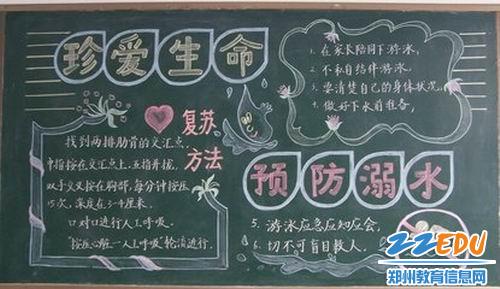 珍爱生命
复苏方法
找到两排肋骨的交汇点,
中指按在交汇点上,五指并拢,
双手交叉按在胸部,每分钟按压
15次,深度在3-4厘米。
口对口进行人工呼吸。
"按压心脏—人工呼吸"轮流进行。
1.在家长陪同下游泳,
2.不私自结伴游泳。
3.要清楚自己的身体状况。
4.做好下水前准备,
预防溺水
5.游泳应急应知应会。
6.切不可盲目救人。
ZZEDU
郑州教育信息网